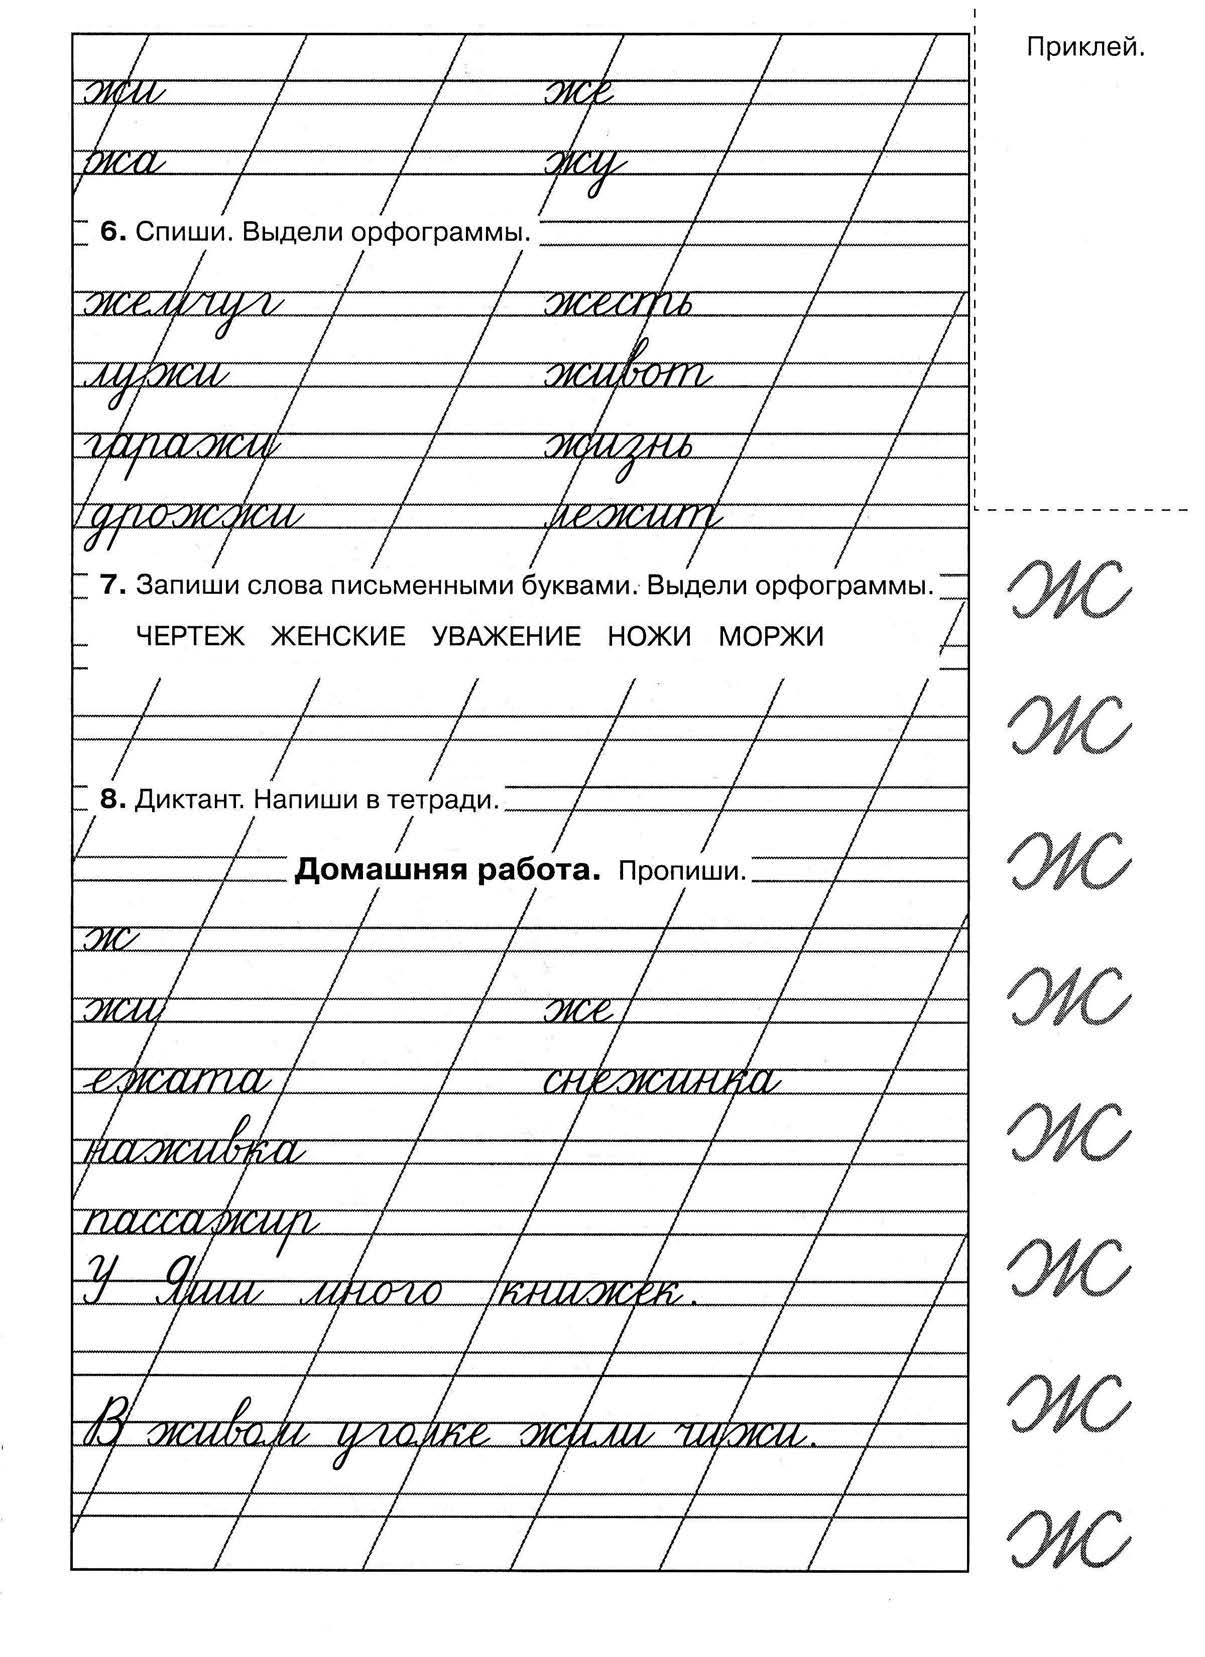 Приклей.
жи же
жа жу
6. Спиши. Выдели орфограммы.
жемчуг жесть
лужи живот
гаражи жизнь
дрожжи лежит
7. Запиши слова письменными буквами. Выдели орфограммы.
ЧЕРТЕЖ ЖЕНСКИЕ УВАЖЕНИЕ НОЖИ МОРЖИ
8. Диктант. Напиши в тетради.
Домашняя работа. Пропиши.
ж
жи же
ежата снежинка
наживка
пассажир
У Яши много книжек.
В живом уголке жили чижи.
ж
ж
ж
ж
ж
ж
ж
ж